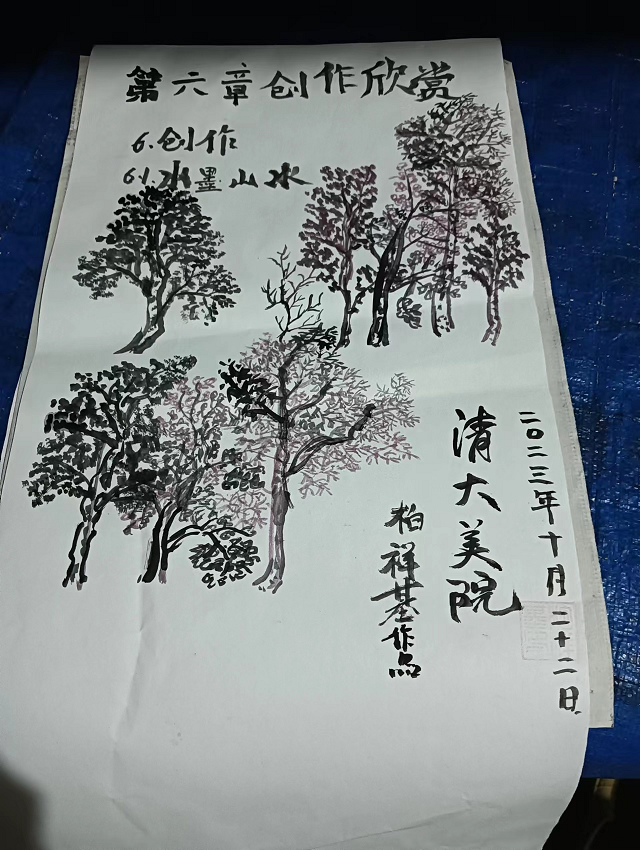 第六章创作欣赏
6.创作
6.1.水墨山水
二〇二三年十月二十二日
清大美院
柏祥基作品